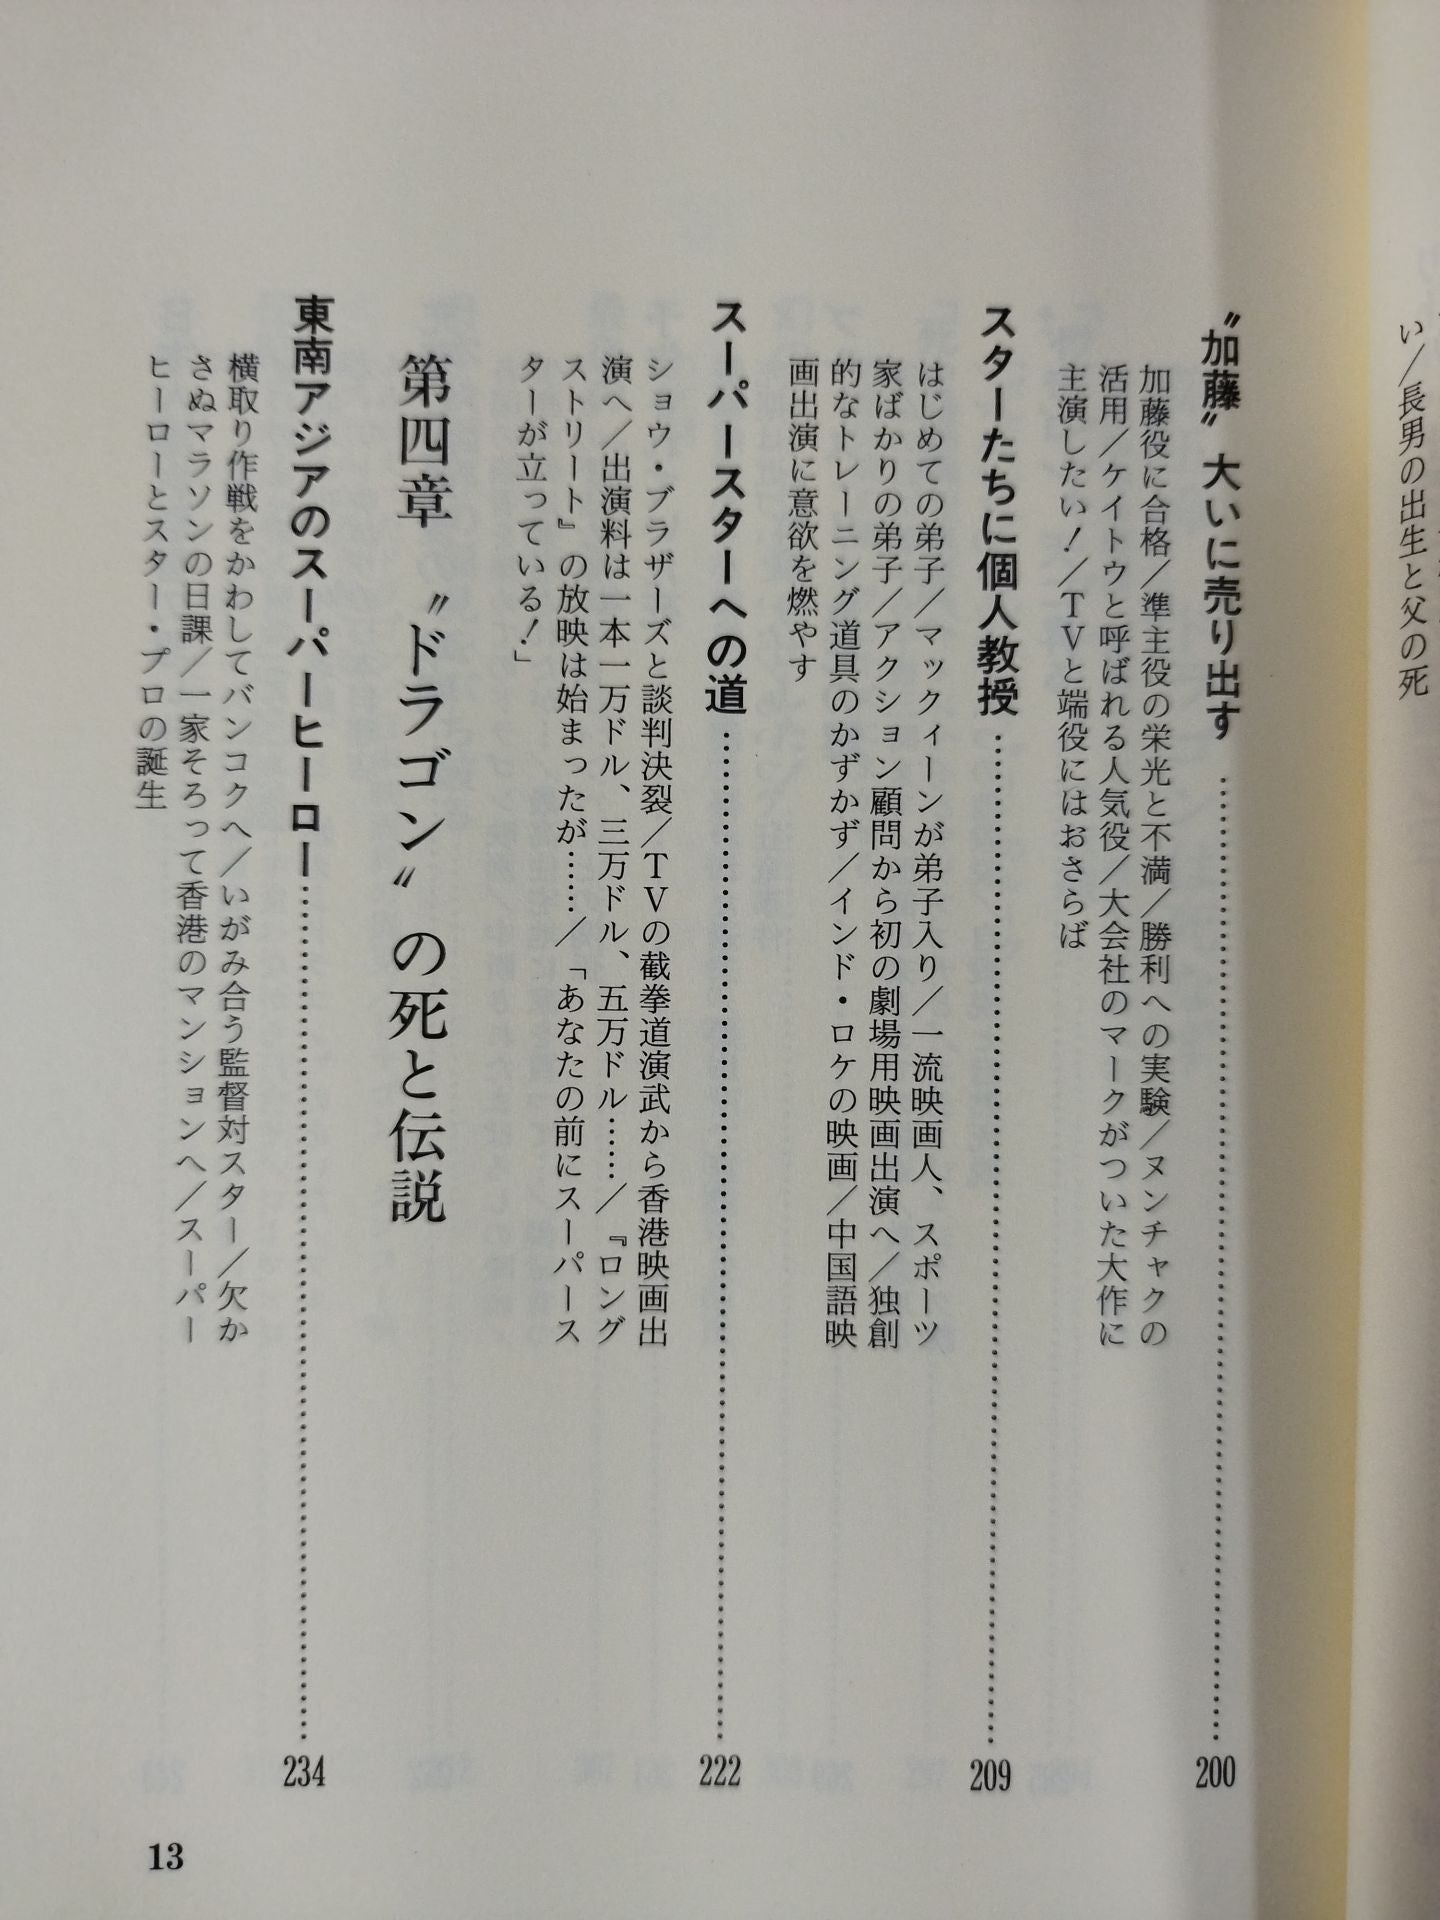 い/長男の出生と父の死
〝加藤〟大いに売り出す……………200
加藤役に合格/準主役の栄光と不満/勝利への実験/ヌンチャクの
活用/ケイトウと呼ばれる人気役/大会社のマークがついた大作に
主演したい!/TVと端役にはおさらば
スターたちに個人教授……………209
はじめての弟子/マックィーンが弟子入り/一流映画人、スポーツ
家ばかりの弟子/アクション顧問から初の劇場用映画出演へ/独創
的なトレーニング道具のかずかず/インド・ロケの映画/中国語映
画出演に意欲を燃やす
スーパースターへの道……………222
ショウ・ブラザーズと談判決裂/TVの截拳道演武から香港映画出
演へ/出演料は一本一万ドル、三万ドル、五万ドル……/『ロング
ストリート』の放映は始まったが……/「あなたの前にスーパース
ターが立っている!」
第四章 〝ドラゴン〟の死と伝説
東南アジアのスーパーヒーロー……………234
横取り作戦をかわしてバンコクへ/いがみ合う監督対スター/欠か
さぬマラソンの日課/一家そろって香港のマンションへ/スーパー
ヒーローとスター・プロの誕生
13